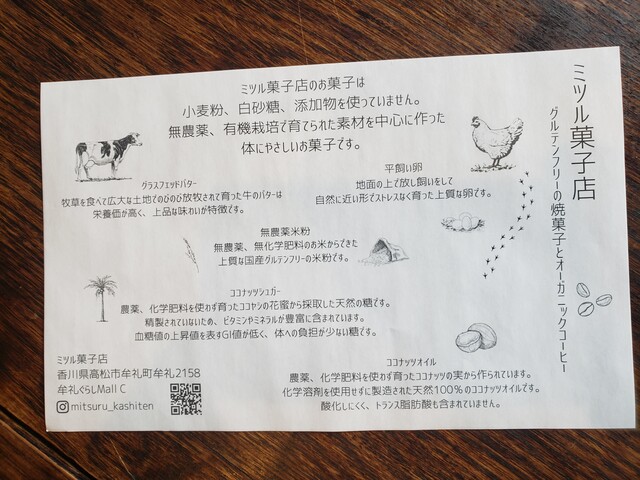 ミツル菓子店
グルテンフリーの焼菓子とオーガニックコーヒー
ミツル菓子店のお菓子は
小麦粉、白砂糖、添加物を使っていません。
無農薬、有機栽培で育てられた素材を中心に作った
体にやさしいお菓子です。
グラスフェッドバター
牧草を食べて広大な土地でのびのび放牧されて育った牛のバターは
栄養価が高く、上品な味わいが特徴です。
平飼い卵
地面の上で放し飼いをして
自然に近い形でストレスなく育った上質な卵です。
無農薬米粉
無農薬、無化学肥料のお米からできた
上質な国産グルテンフリーの米粉です。
ココナッツシュガー
農薬、化学肥料を使わず育ったココヤシの花蜜から採取した天然の糖です。
精製されていないため、ビタミンやミネラルが豊富に含まれています。
血糖値の上昇値を表すGI値が低く、体への負担が少ない糖です。
ココナッツオイル
農薬、化学肥料を使わず育ったココナッツの実から作られています。
化学溶剤を使用せずに製造された天然100%のココナッツオイルです。
酸化しにくく、トランス脂肪酸も含まれていません。
ミツル菓子店
香川県高松市牟礼町牟礼2158
牟礼ぐらしMall C
mitsuru_kashiten